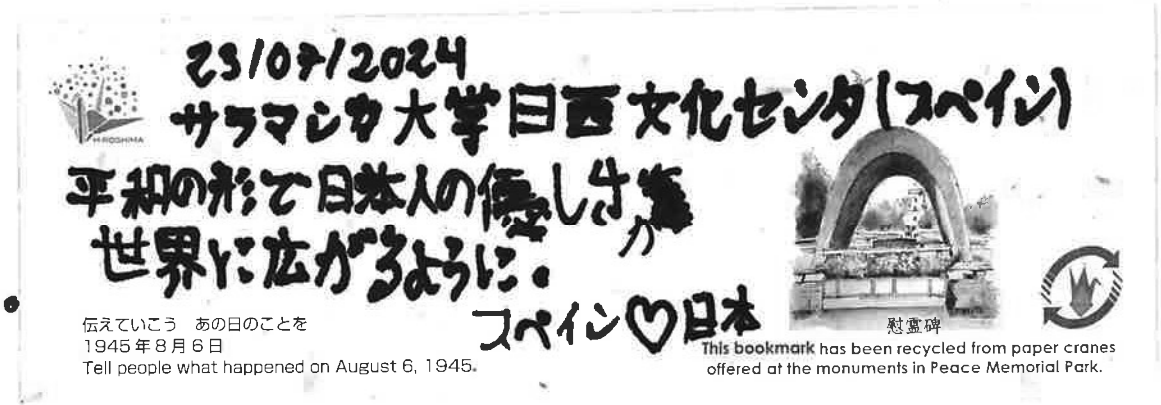 23/07/2024
サラマンカ大学日西文化センタ(スペイン)
平和の形で日本人の優しさが
世界に広がるように。
スペイン♡日本
HIROSHIMA
伝えていこう あの日のことを
1945年8月6日
Tell people what happened on August 6, 1945.
慰霊碑
This bookmark has been recycled from paper cranes
offered at the monuments in Peace Memorial Park.